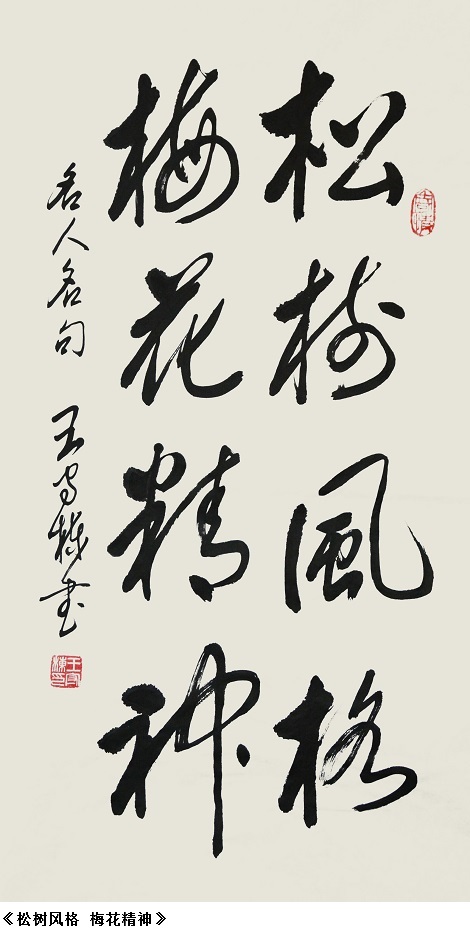 松樹風格
梅花精神
名人名句 王守棫書
《松树风格 梅花精神》